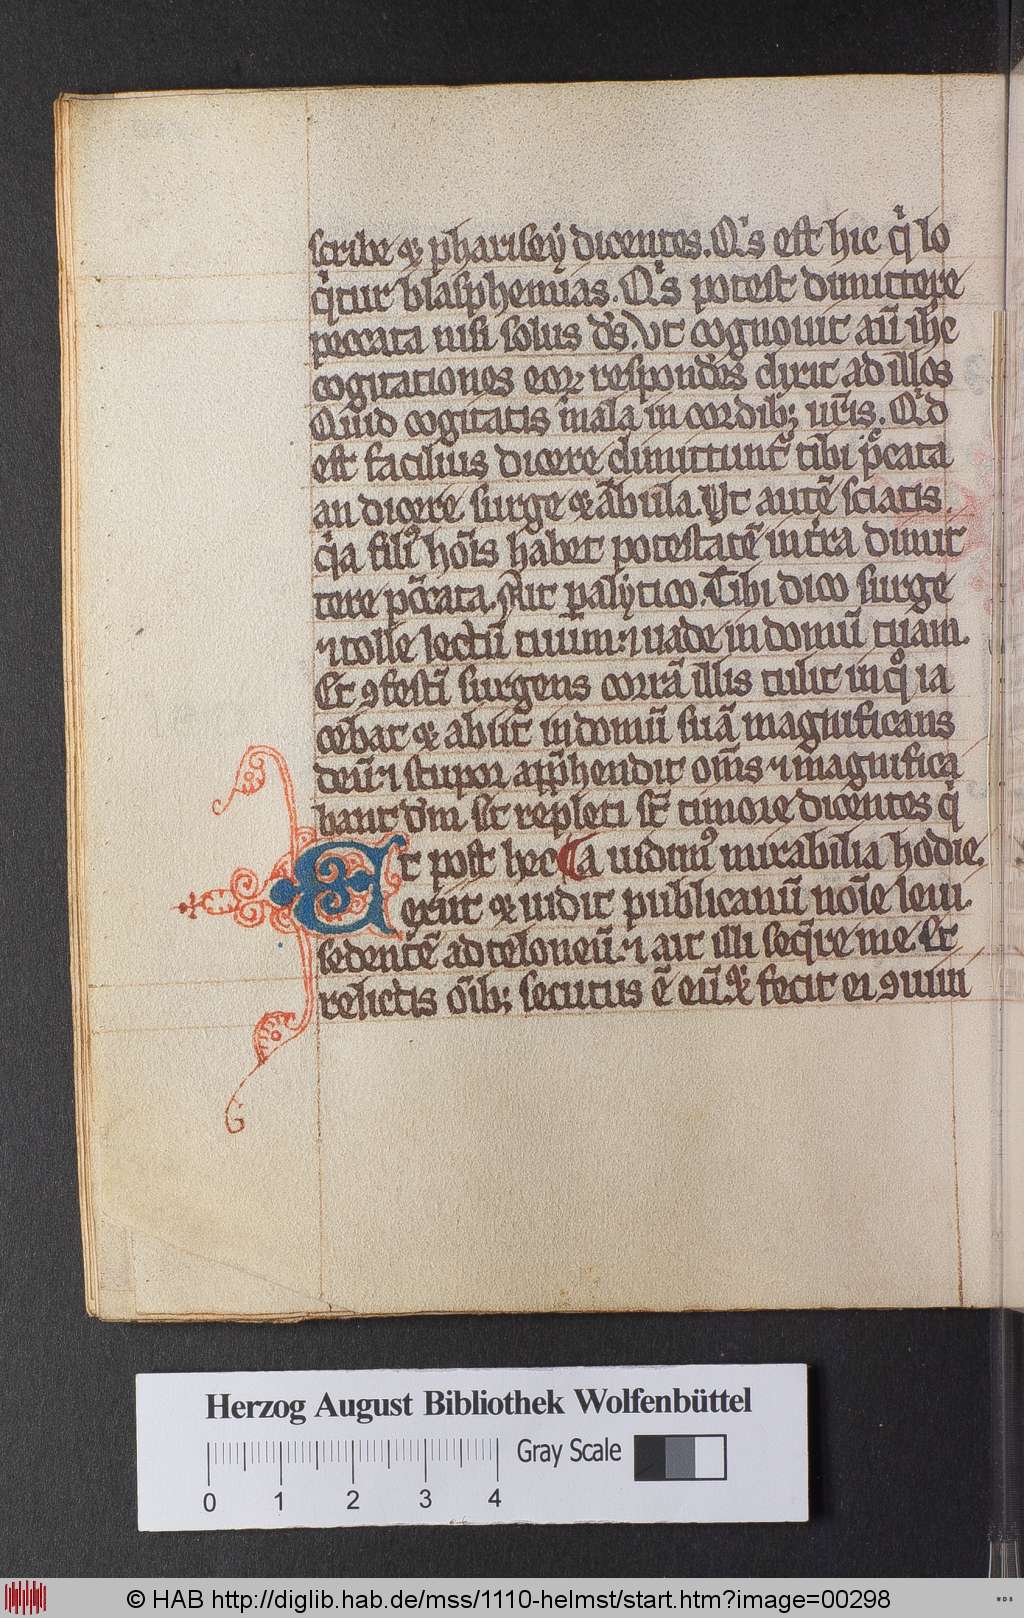 scribe ⁊ pharisey dicentes. Qͥs est hic qͥ lo
qͥtur blasphemias. Qͥs potest dimittere
peccata nisi solus dс̄. Vt cognouit aūt ihc
cogitationes eoꝝ respondēs dixit ad illos
Quid cogitatis mala in cordibꝫ uris̄. Qͥd
est facilius dicere dimittuntᷣ tibi pc̄cata
an dicere surge ⁊ ābula. Vt autē sciatis
qͥa filiꝰ hoīs habet potestatē in tr̄a dimit
tere pc̄cata. Ait ꝑalytico. Tibi dico surge
⁊ tolle lectū tuum: ⁊ uade in domū tuam.
Et ꝯfestī surgens corrā illis tulit in qͦ ia
cebat ⁊ abiit in domū suā magnificans
deū: ⁊ stupor app̄hendit om̄s ⁊ magnifica
bant dm̄. Et repleti st̄ timore dicentes qͥ
Et post hec a uidimꝰ mirabilia hodie.
exiit ⁊ uidit publicanū noīe leui.
sedentē ad teloneū. ⁊ ait illi seq̄re me. Et
relictis oībꝫ secutus ē eū. ⁊ fecit ei ꝯuiui
Herzog August Bibliothek Wolfenbüttel
Gray Scale
0 1 2 3 4
© HAB http://diglib.hab.de/mss/1110-helmst/start.htm?image=00298